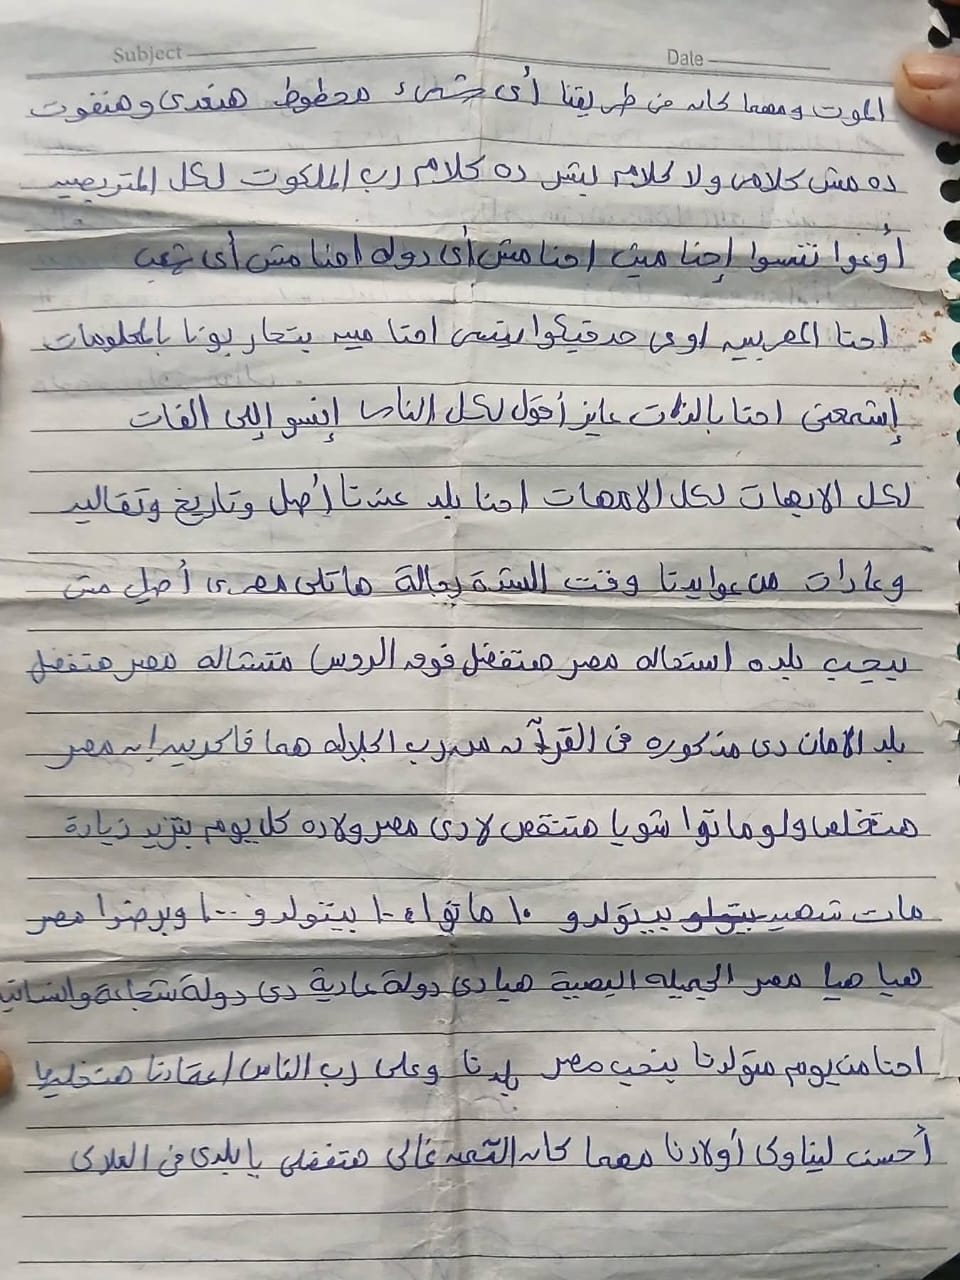 Subject
Date
الموت ومهما كان فى طريقنا أى شىء محطوط هنعدى وهنفوت
ده مش كلامى ولا كلام بشر ده كلام رب الملكوت لكل المتربصين
أوعوا تنسوا إحنا مين احنا مش أى دوله احنا مش أى شعب
احنا المصريين اوعى حد فيكوا ينسى احنا مين بتحاربونا بالمعلومات
إشمعنى احنا بالذات عايز أقول لكل الناس إنسو اللى الفات
لكل الابهات لكل الامهات احنا بلد عندنا أصل وتاريخ وتقاليد
وعادات من عوايدنا وقت الشدة رجالة ماتلى مصرى أصلى مش
بيحب بلده استحاله مصر هتفضل فوق الروس متشاله مصر هتفضل
بلد الامان دى مذكوره فى القرآن من رب الجلاله هما فاكرين إن مصر
هتخلص ولو ماتوا شويا هتنقص لا دى مصر ولاده كل يوم بتزيد زيادة
مات شهيد بيتولدو ١٠ ماتوا ١٠ بيتولدو ١٠٠ وبرضوا مصر
هيا هيا مصر الجميله البهية هيا دى دولة عادية دى دولة شجاعة وانسانية
احنا من يوم متولدنا بنحب مصر بلدنا وعلى رب الناس اعتمادنا هتخليها
أحسن لينا وكى أولادنا مهما كان التمن غالى هتفضلى يا بلدى فى العلالى